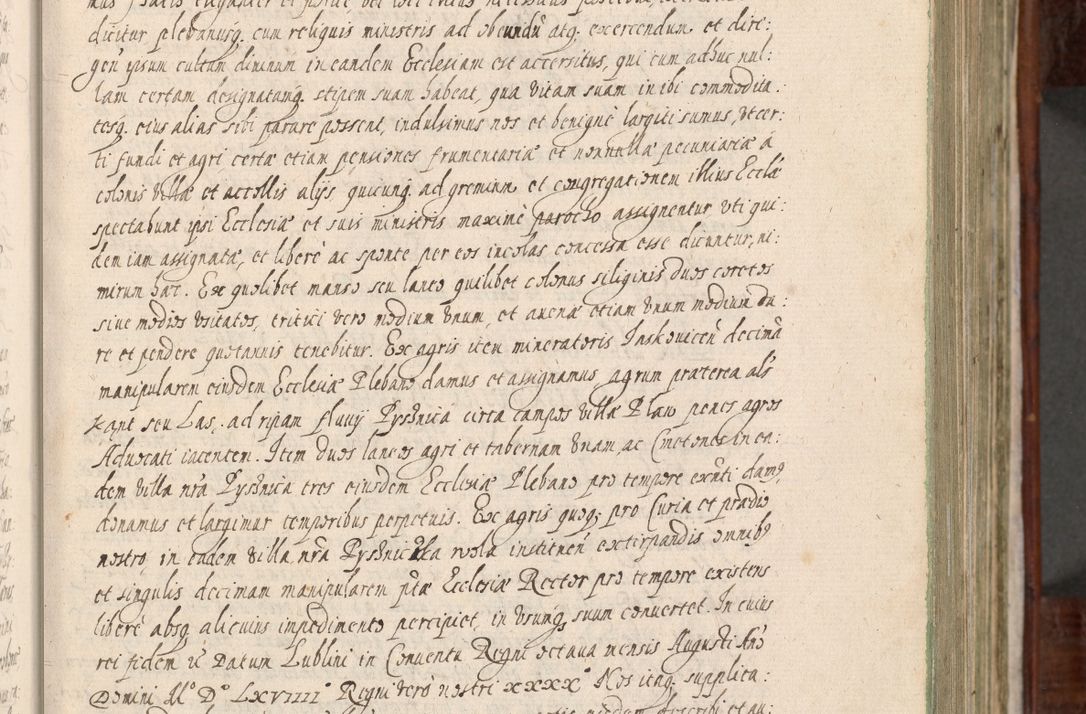 dicitur plebanusq. cum reliquis ministris ad obeundũ atq. exercendum et dire:
gen̄ ipsum cultum diuinum in eandem Ecclesiam est accersitus, qui cum adhuc nul:
lam certam designatamq. stipem suam habeat, qua vitam suam inibi commodita:
tesq. eius alias sibi parare possent, indulsimus nos et benigne largiti sumus, vt cer:
ti fundi et agri certæ etiam pensiones frumentariæ et nonnullæ pecuniariæ á
colonis villæ et accollis alijs, quicunq. ad gremium et congregationem illius Ecclæ
spectabunt ipsi Ecclesiæ et suis ministris maximè parocho assignentur, vti qui:
dem iam assignatæ, et liberè ac sponte per eos incolas concessæ esse dicuntur, ni:
mirum hæc. Ex quolibet manso seu laneo quilibet colonus siliginis duos coretos
siue modios vsitatos, tritici vero modium vnum, et auenæ etiam vnum modium da:
re et pendere quotannis tenebitur. Ex agris item mineratoris Jaskouicen̄ decimã
manipularem eiusdem Ecclesiæ Plebano damus et assignamus agrum præterea als
kąpt seu Las, ad ripam fluuij Pysznica circa campos villæ Plaw penes agros
Aduocati iacentem. Item duos laneos agri et tabernam vnam, ac Cmetones in ea:
dem villa nr̃a Pysznica tres eiusdem Ecclesiæ Plebano pro tempore exñti damꝰ
donamus et largimur temporibus perpetuis. Ex agris quoq; pro Curia et prædio
nostro, in eadem villa nr̃a wola instituen̄ extirpandis omnibꝰ
et singulis decimam manipularem pr̃tæ Ecclesiæ Rector pro tempore existens
liberè absq. alicuius impedimento percipiet, in vsumq. suum conuertet. In cuius
rei fidem &c̃ Datum Lublini in Conuentu Regni octaua mensis Augusti Año
Domini Mº Dº LXVIIIIº Regni verò nostri XXXXº Nos itaq. supplica: